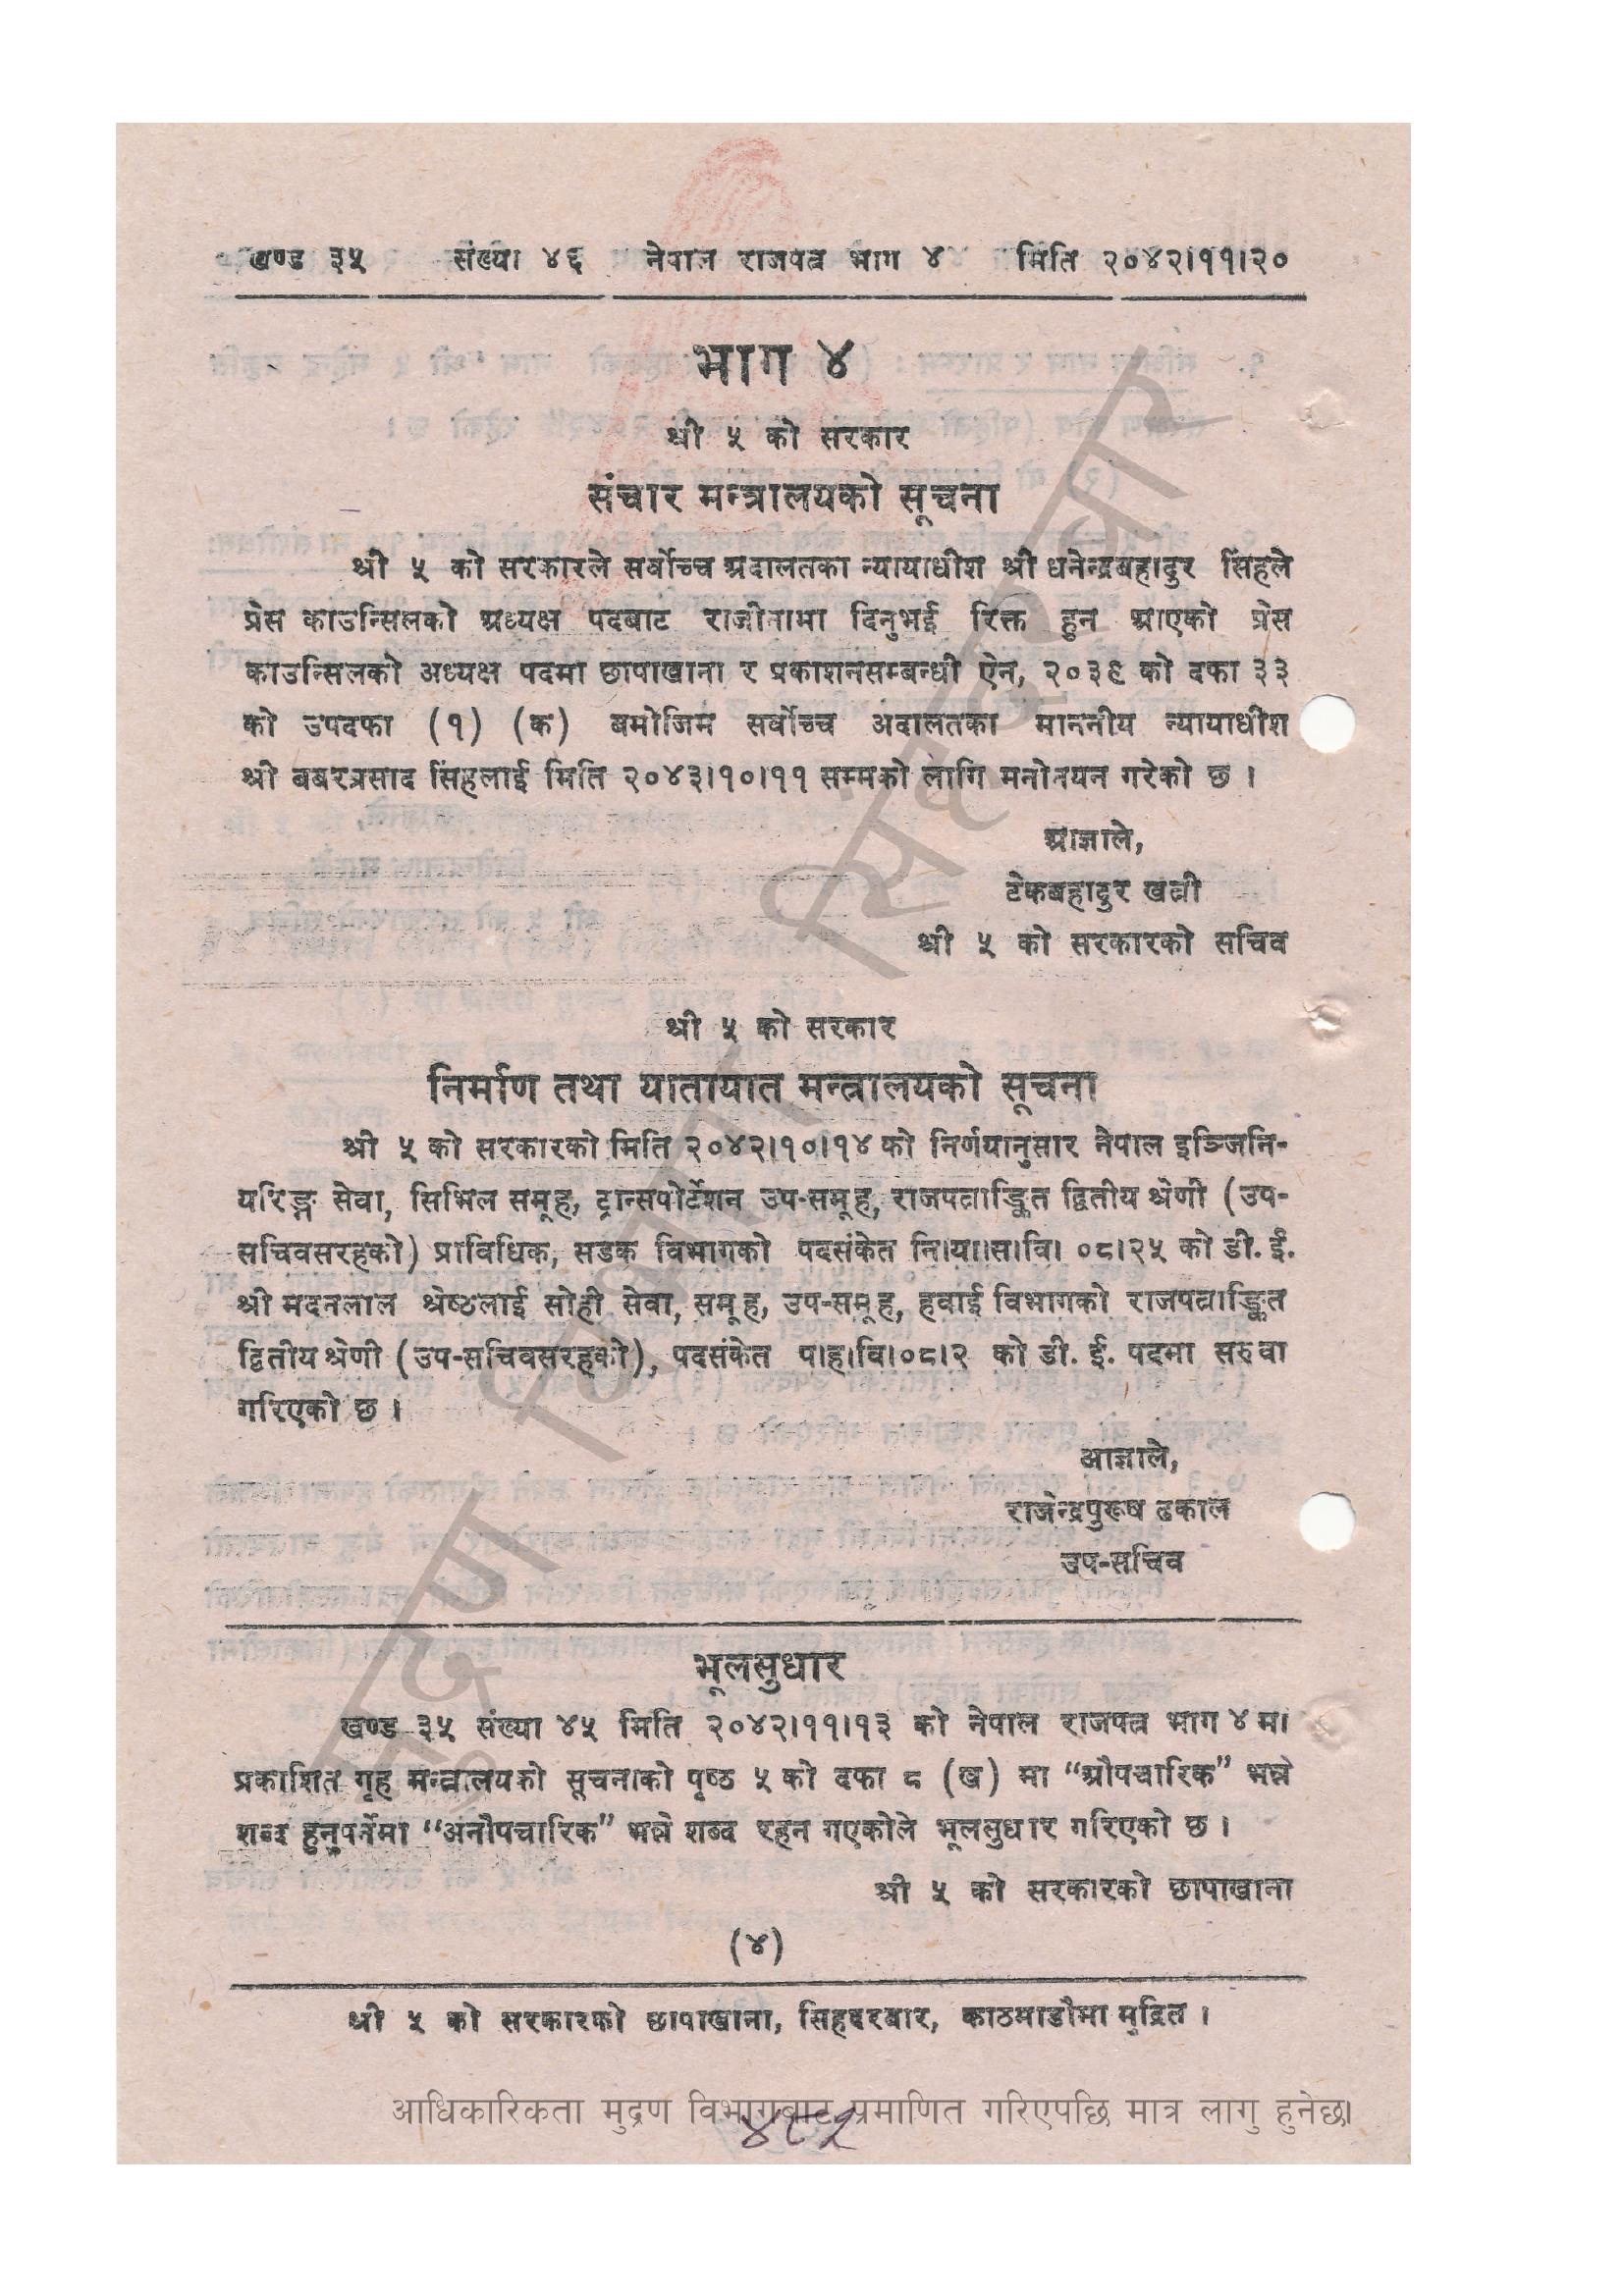 खण्ड ३५ संख्या ४६ नेपाल राजपत्र भाग ४ मिति २०४२।११।२०
भाग ४
श्री ५ को सरकार
संचार मन्त्रालयको सूचना
श्री ५ को सरकारले सर्वोच्च अदालतका न्यायाधीश श्री धनेन्द्रबहादुर सिंहले
प्रेस काउन्सिलको अध्यक्ष पदबाट राजीनामा दिनुभई रिक्त हुन आएको प्रेस
काउन्सिलको अध्यक्ष पदमा छापाखाना र प्रकाशनसम्बन्धी ऐन, २०३९ को दफा ३३
को उपदफा (१) (क) बमोजिम सर्वोच्च अदालतका माननीय न्यायाधीश
श्री बबरप्रसाद सिंहलाई मिति २०४३।१०।११ सम्मको लागि मनोनयन गरेको छ ।
आज्ञाले,
टेकबहादुर खत्री
श्री ५ को सरकारको सचिव
श्री ५ को सरकार
निर्माण तथा यातायात मन्त्रालयको सूचना
श्री ५ को सरकारको मिति २०४२।१०।१४ को निर्णयानुसार नेपाल इञ्जिनि-
यरिङ्ग सेवा, सिभिल समूह, ट्रान्सपोर्टेशन उप-समूह, राजपत्राङ्कित द्वितीय श्रेणी (उप-
सचिवसरहको) प्राविधिक, सडक विभागको पदसंकेत नि।या।स।वि। ०८।२५ को डी. ई.
श्री मदनलाल श्रेष्ठलाई सोही सेवा, समूह, उप-समूह, हवाई विभागको राजपत्राङ्कित
द्वितीय श्रेणी (उप-सचिवसरहको), पदसंकेत प।ह।वि।०८।२ को डी. ई. पदमा सरुवा
गरिएको छ ।
आज्ञाले,
राजेन्द्रपुरूष ढकाल
उप-सचिव
भूलसुधार
खण्ड ३५ संख्या ४५ मिति २०४२।११।१३ को नेपाल राजपत्र भाग ४ मा
प्रकाशित गृह मन्त्रालयको सूचनाको पृष्ठ ५ को दफा ८ (ख) मा “औपचारिक” भन्ने
शब्द हुनुपर्नेमा “अनौपचारिक” भन्ने शब्द रहन गएकोले भूलसुधार गरिएको छ ।
श्री ५ को सरकारको छापाखाना
(४)
श्री ५ को सरकारको छापाखाना, सिंहदरबार, काठमाडौंमा मुद्रित ।
आधिकारिकता मुद्रण विभागबाट प्रमाणित गरिएपछि मात्र लागु हुनेछ।
मुद्रण विभाग सिंहदरबार